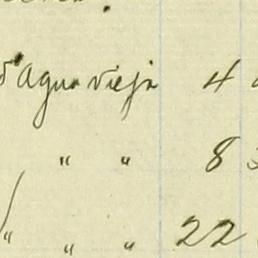 d'Agua vieja 4
" " 8 3
" " " 22